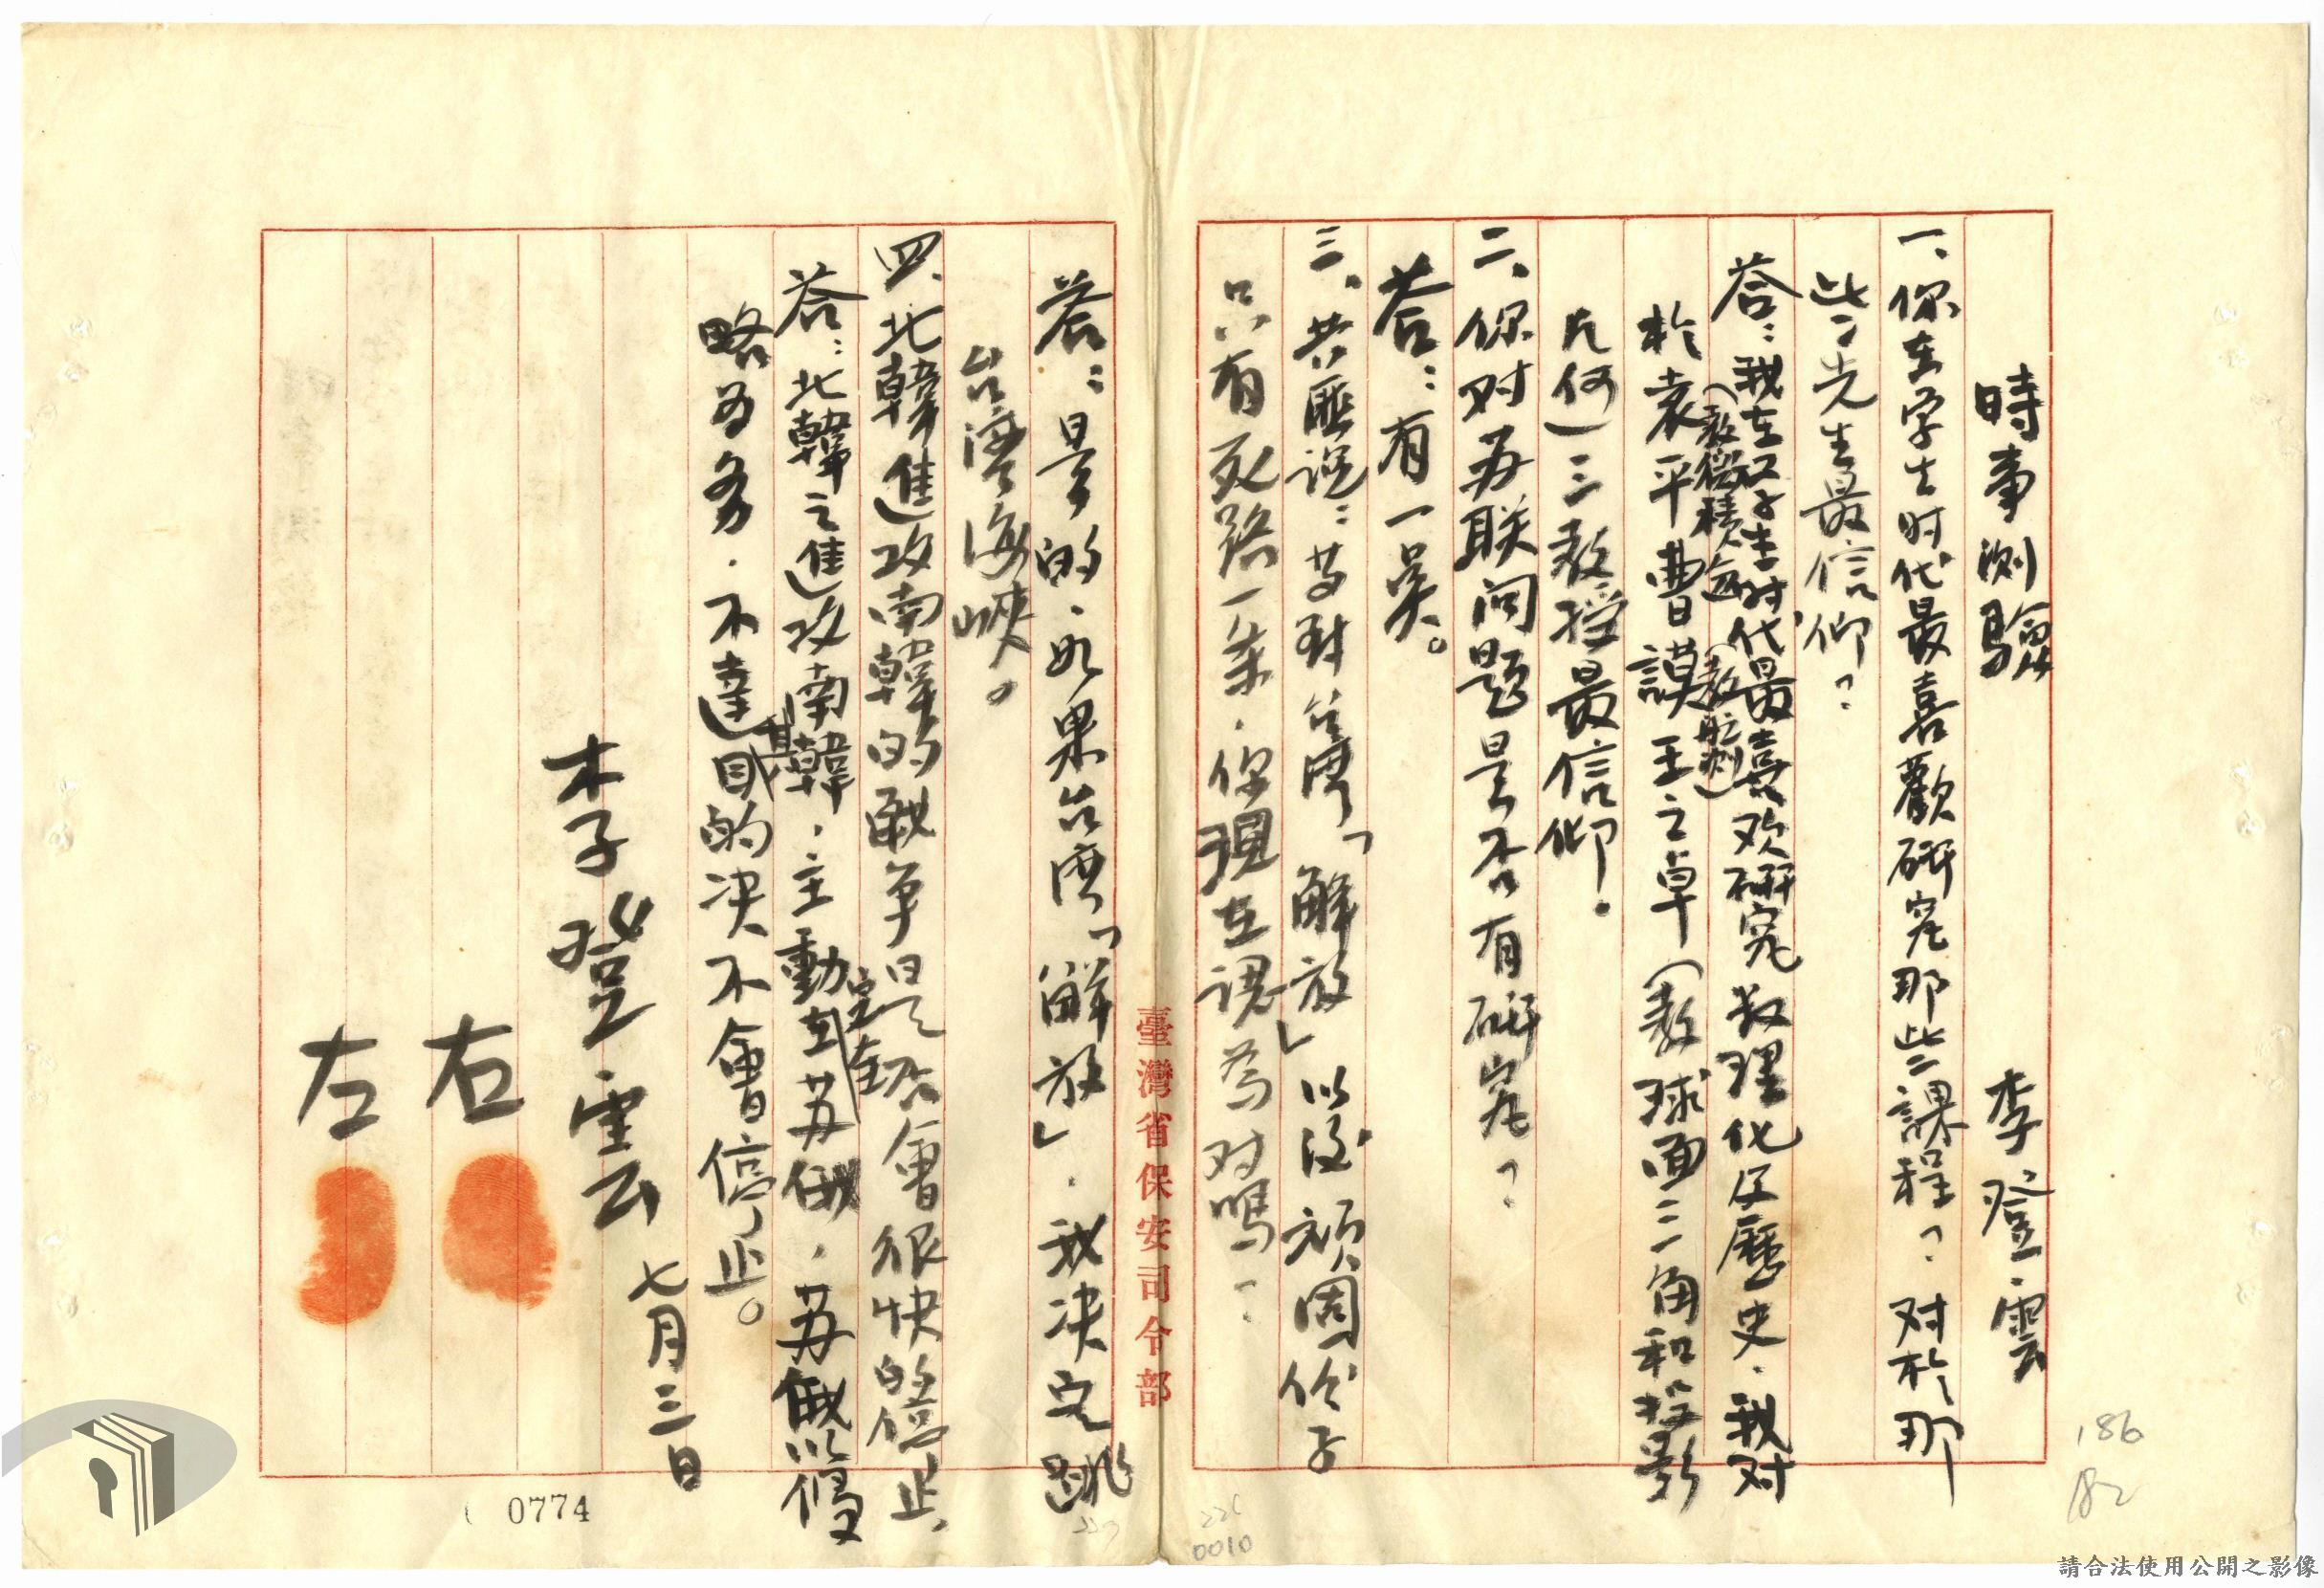 時事測驗　李登雲
一、你在学生时代最喜歡研究那些課程？对於那
些先生最信仰？
答：我在学生时代最喜欢研究数理化及歷史．我对
(教微積分)(教航刻)
於袁平書謨王之卓（教球面三角和投影
几何）三教授最信仰．
二、你对苏联问题是否有研究？
答：有一吴。
三、共匪说：若对台灣「解放」以後頑固份子
只有死路一条．你現在認為对嗎？
答：是的．如果台湾「解放」．我决定跳
台灣海峽。
四、北韓進攻南韓的戰争是否會很快的停止．
答：北韓之進攻南韓．主動
完全
在苏俄．苏俄以侵
略为务．不達
其
目的决不會停止。
李登雲
七月三日
右
左
臺灣省保安司令部
0774
226
0010
227
186
請合法使用公開之影像